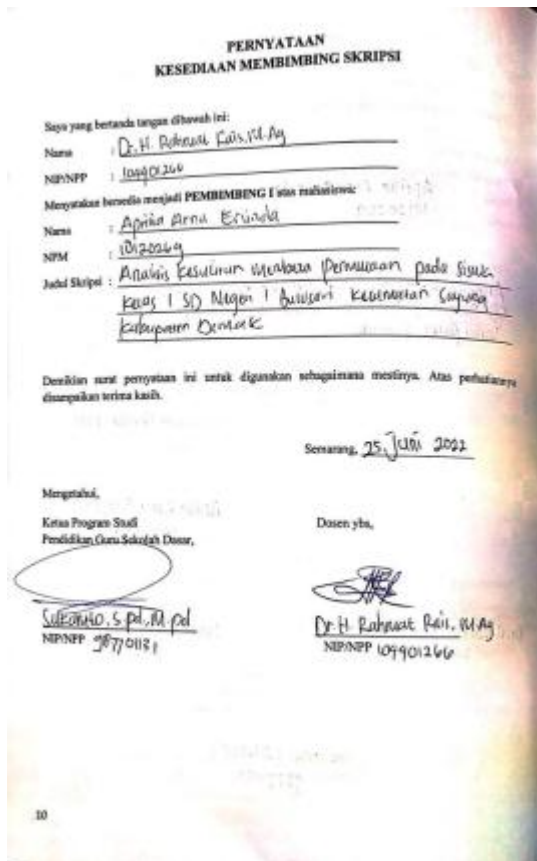 PERNYATAAN
KESEDIAAN MEMBIMBING SKRIPSI
Saya yang bertanda tangan dibawah ini:
Nama : Dr. H. Rahmat Rais, M.Ag
NIP/NPP : 109901266
Menyatakan bersedia menjadi PEMBIMBING I atas mahasiswa:
Nama : Aprilia Arma
NPM :
Judul Skripsi : Analisis Kesulitan Membaca Permulaan pada Siswa
Kelas 1 SD Negeri 1 Kecamatan Sayung
Kabupaten Demak
Demikian surat pernyataan ini untuk digunakan sebagaimana mestinya. Atas perhatiannya
disampaikan terima kasih.
Semarang, 25, Juni 2022
Mengetahui,
Ketua Program Studi
Pendidikan Guru Sekolah Dasar,
Dosen ybs,
S.pd., M.pd
NIP/NPP
Dr. H. Rahmat Rais, M.Ag
NIP/NPP 109901266
10